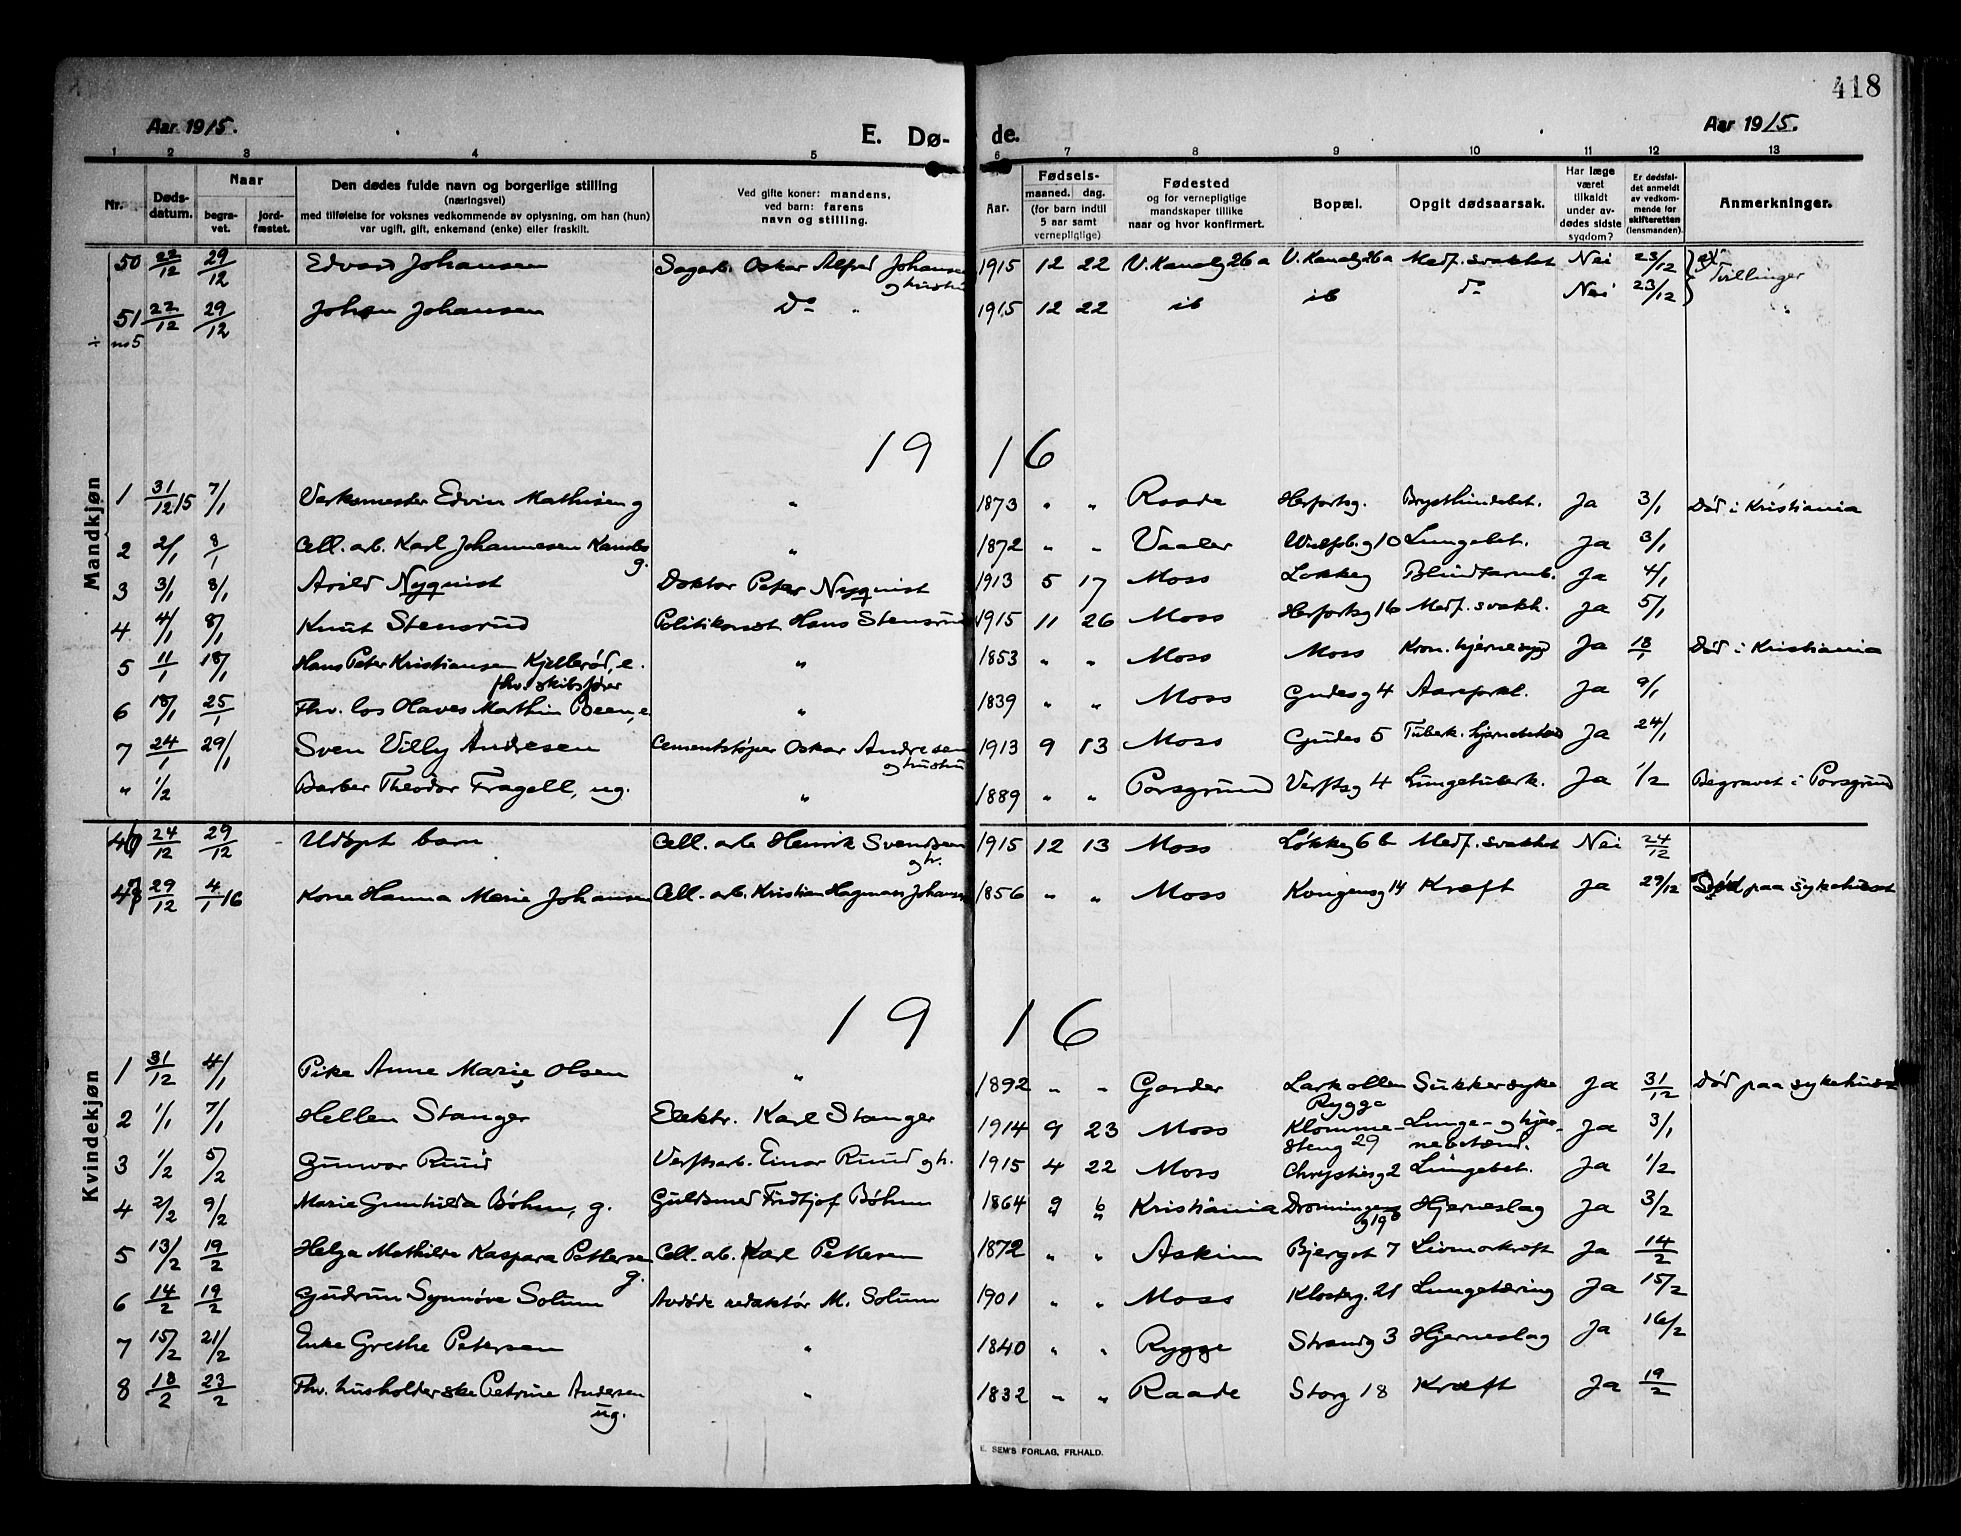 418
Aar 1915. E. Dø- de. Aar 1915.
1 2 3 4 5 6 7 8 9 10 11 12 13
Nr. Døds-datum. Naar begra-vet. jord-fæstet. Den dødes fulde navn og borgerlige stilling (næringsvei) med tilføielse for voksnes vedkommende av oplysning, om han (hun) var ugift, gift, enkemand (enke) eller fraskilt. Ved gifte koner: mandens, ved barn: farens navn og stilling. Aar. Fødsels- maaned. dag. (for barn indtil 5 aar samt vernepligtige) Fødested og for vernepligtige mandskaper tillike naar og hvor konfirmert. Bopæl. Opgit dødsaarsak. Har læge været tilkaldt under av-dødes sidste sygdom? Er dødsfal-det anmeldt av vedkom-mende for skifteretten (lensmanden). Anmerkninger.
Mandkjøn
50 22/12 29/12 Edvard Johansen Sagarb. Oskar Alfred Johansen og hustru 1915 12 22 V. Kanalg 26a V. Kanalg 26a Medf. svakhet Nei 23/12 Tvillinger
51 22/12 29/12 Johan Johansen Do " 1915 12 22 ib ib do Nei 23/12 "
÷ no 5
19 16
1 31/12 15 7/1 Verksmester Edvin Mathisen g " 1873 " " Raade Herfortsg. Brysthindebet. Ja 3/1 Død i Kristiania
2 2/1 8/1 Cell. arb. Karl Johannesen g. " 1872 " " Vaaler Wulfsbg 10 Lungebet. Ja 3/1
3 3/1 8/1 Arild Nyquist Doktor Peter Nyquist 1913 5 17 Moss Løkkeg Blindtarmb. Ja 4/1
4 4/1 8/1 Knut Stensrud Politikonst Hans Stensrud 1915 11 26 Moss Herfortsg 16 Medf. svakh. Ja 5/1
5 11/1 18/1 Hans Peter Kristiansen Kjellerød, e. fhv. skibsfører " 1853 " " Moss Moss Kron. hjernesygd Ja 18/1 Død i Kristiania
6 18/1 25/1 Fhv. los Olaves Mathin Been, e. " 1839 " " Moss Gudesg 4 Aareforkl. Ja 9/1
7 24/1 29/1 Sven Villy Andresen Cementstøper Oskar Andresen og hustru 1913 9 13 Moss Gudes 5 Tuberk. Ja 24/1
" 1/2 Barber Theodor Fragell, ug. " 1889 " " Porsgrund Verftsg 4 Lungetuberk. Ja 1/2 Begravet i Porsgrund
Kvindekjøn
46 24/12 29/12 - Udøpt barn Cell. arb Henrik Svendsen og h. 1915 12 13 Moss Løkkeg 6 b Medf. svakhet Nei 24/12
47 29/12 4/1 16 Kone Hanna Marie Johansen Cell. arb. Kristian Hagman Johansen 1856 " " Moss Kongensg 14 Kræft Ja 29/12 Død paa sykehuset
19 16
1 31/12 4/1 Pike Anne Marie Olsen " 1892 " " Garder Larkollen Rygge Sukkersyke Ja 31/12 Død paa sykehuset
2 1/1 7/1 Hellen Stanger Elektr. Karl Stanger 1914 9 23 Moss Klomme-steng 29 Lunge- og hjer-nebetænd. Ja 3/1
3 1/2 5/2 Gunvor Ruud Verftsarb. Einar Ruud og h. 1915 4 22 Moss Chrystiesg 2 Lungebet. Ja 1/2
4 2/2 9/2 Marie Gunhilda Bøhm, g. Guldsmed Fridtjof Bøhm 1864 9 6 Kristiania Dronningensg 19 b Hjerneslag Ja 3/2
5 13/2 19/2 Helga Mathilde Kaspara Pettersen g. Cell. arb. Karl Pettersen 1872 " " Askim Bjerget 7 Livmorkræft Ja 14/2
6 14/2 19/2 Gudrun Synnøve Solum Avdøde redaktør M. Solum 1901 " " Moss Klosterg. 21 Lungetæring Ja 15/2
7 15/2 21/2 Enke Grethe Petersen " 1840 " " Rygge Strandg 3 Hjerneslag Ja 16/2
8 18/2 23/2 Fhv. husholderske Petrine Andersen ug. " 1832 " " Raade Storg 18 Kræft Ja 19/2
E. SEM'S FORLAG, FR.HALD.